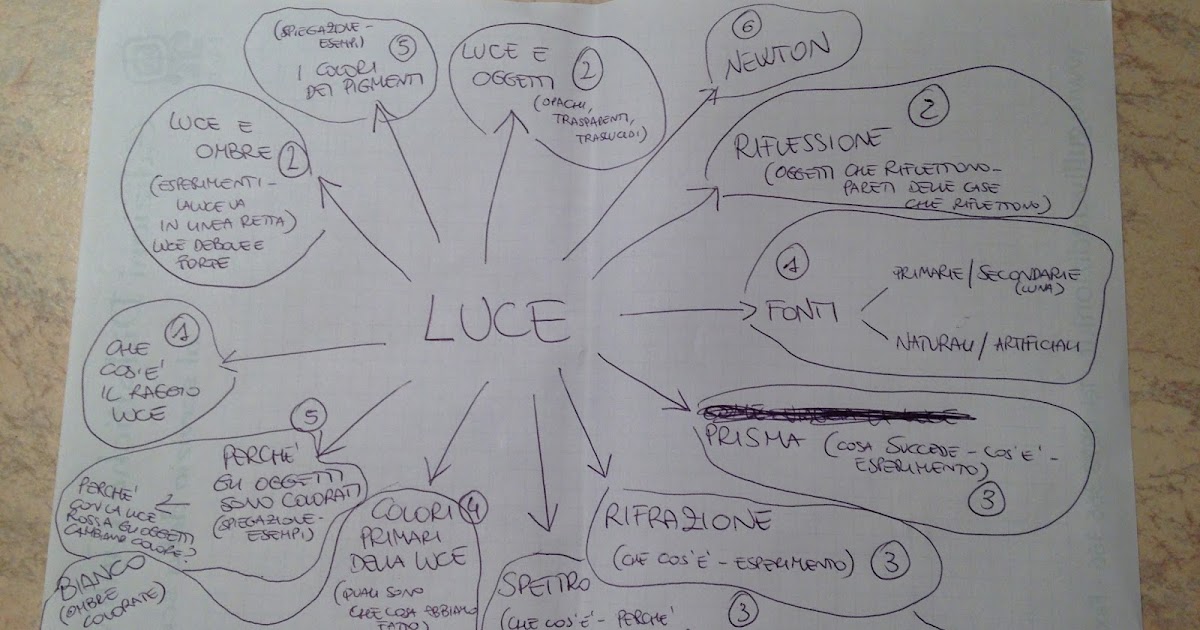 (SPIEGAZIONE-
ESEMPI)
5
I COLORI
DEI PIGMENTI
LUCE E
OGGETTI
2
(OPACHI,
TRASPARENTI,
TRASLUCIDI)
6
NEWTON
LUCE E
OMBRE
2
(ESPERIMENTI-
LA LUCE VA
IN LINEA RETTA)
LUCE DEBOLE E
FORTE
2
RIFLESSIONE
(OGGETTI CHE RIFLETTONO-
PARETI DELLE CASE
CHE RIFLETTONO)
LUCE
1
FONTI
PRIMARIE/SECONDARIE
(LUNA)
NATURALI/ARTIFICIALI
1
CHE
COS'E'
IL RAGGIO
LUCE
PRISMA (COSA SUCCEDE-COS'E'-
ESPERIMENTO)
3
5
PERCHE'
GLI OGGETTI
SONO COLORATI
(SPIEGAZIONE-
ESEMPI)
PERCHE'
CON LA LUCE
ROSSA GLI OGGETTI
CAMBIANO COLORE?
BIANCO
(OMBRE
COLORATE)
COLORI 4
PRIMARI
DELLA LUCE
(QUALI SONO
CHE COSA ABBIAMO
FATTO)
RIFRAZIONE
(CHE COS'E' - ESPERIMENTO) 3
SPETTRO
3
(CHE COS'E' - PERCHE'